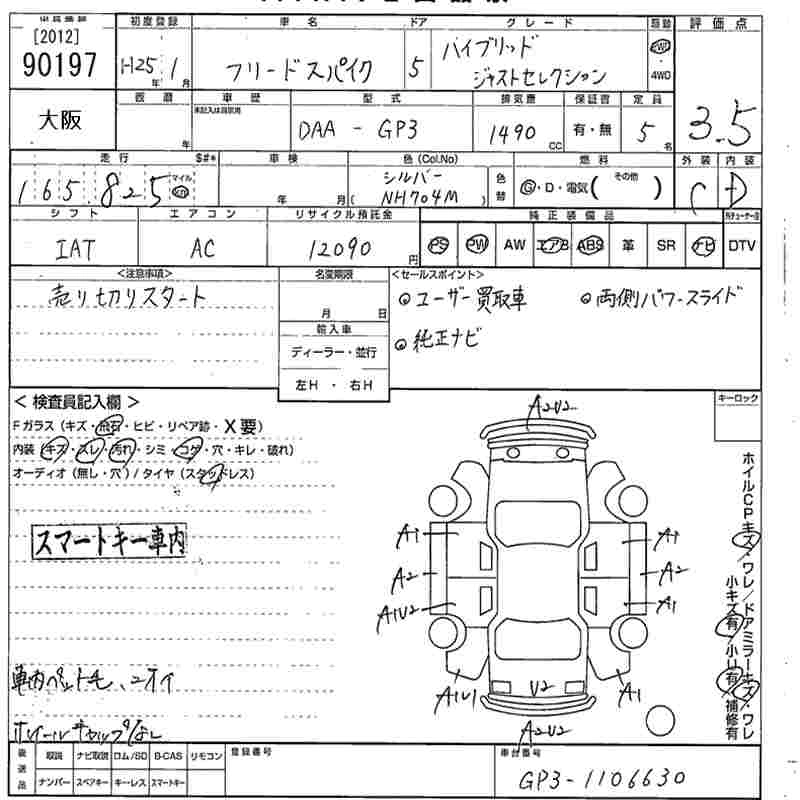 [2012]
90197
初度登録 車名 ドア グレード 駆動 評価点
H25年 1月 フリードスパイク 5 ハイブリッド ジャストセレクション 2WD 4WD
大阪
車歴 型式 排気量 保証書 定員
未記入は自家用 DAA-GP3 1490cc 有・無 5名 3.5
走行 S#* 車検 色(Col.No) 燃料 外装 内装
165,825 マイル km 年 月 シルバー (NH704M) 色替 G・D・電気( その他 ) C D
シフト エアコン リサイクル預託金 純正装備品
IAT AC 12090円 PS PW AW エアB ABS 革 SR ナビ DTV
<注意事項> 名変期限 <セールスポイント>
売り切りスタート 月 日 ユーザー買取車 両側パワースライド
輸入車 純正ナビ
ディーラー・並行
左H・右H
<検査員記入欄> キーロック
Fガラス(キズ・飛石・ヒビ・リペア跡・X要)
内装(キズ・スレ・汚れ・シミ・コゲ・穴・キレ・破れ)
オーディオ(無し・穴)/タイヤ(スタッドレス)
スマートキー車内
A2U2
A1 A1
A2 A2
A1U2 A1
A1U1 U2 A1
A2U2
ホイルCPキズ/ワレ/ドアミラーキズ・ワレ
小キズ有/小U有/補修有
車内ペット毛、ニオイ
ホイールキャップなし
後送品 取説 ナビ取説 ロム/SD B-CAS リモコン 登録番号 車台番号
ナンバー スペアキー キーレス スマートキー GP3-1106630